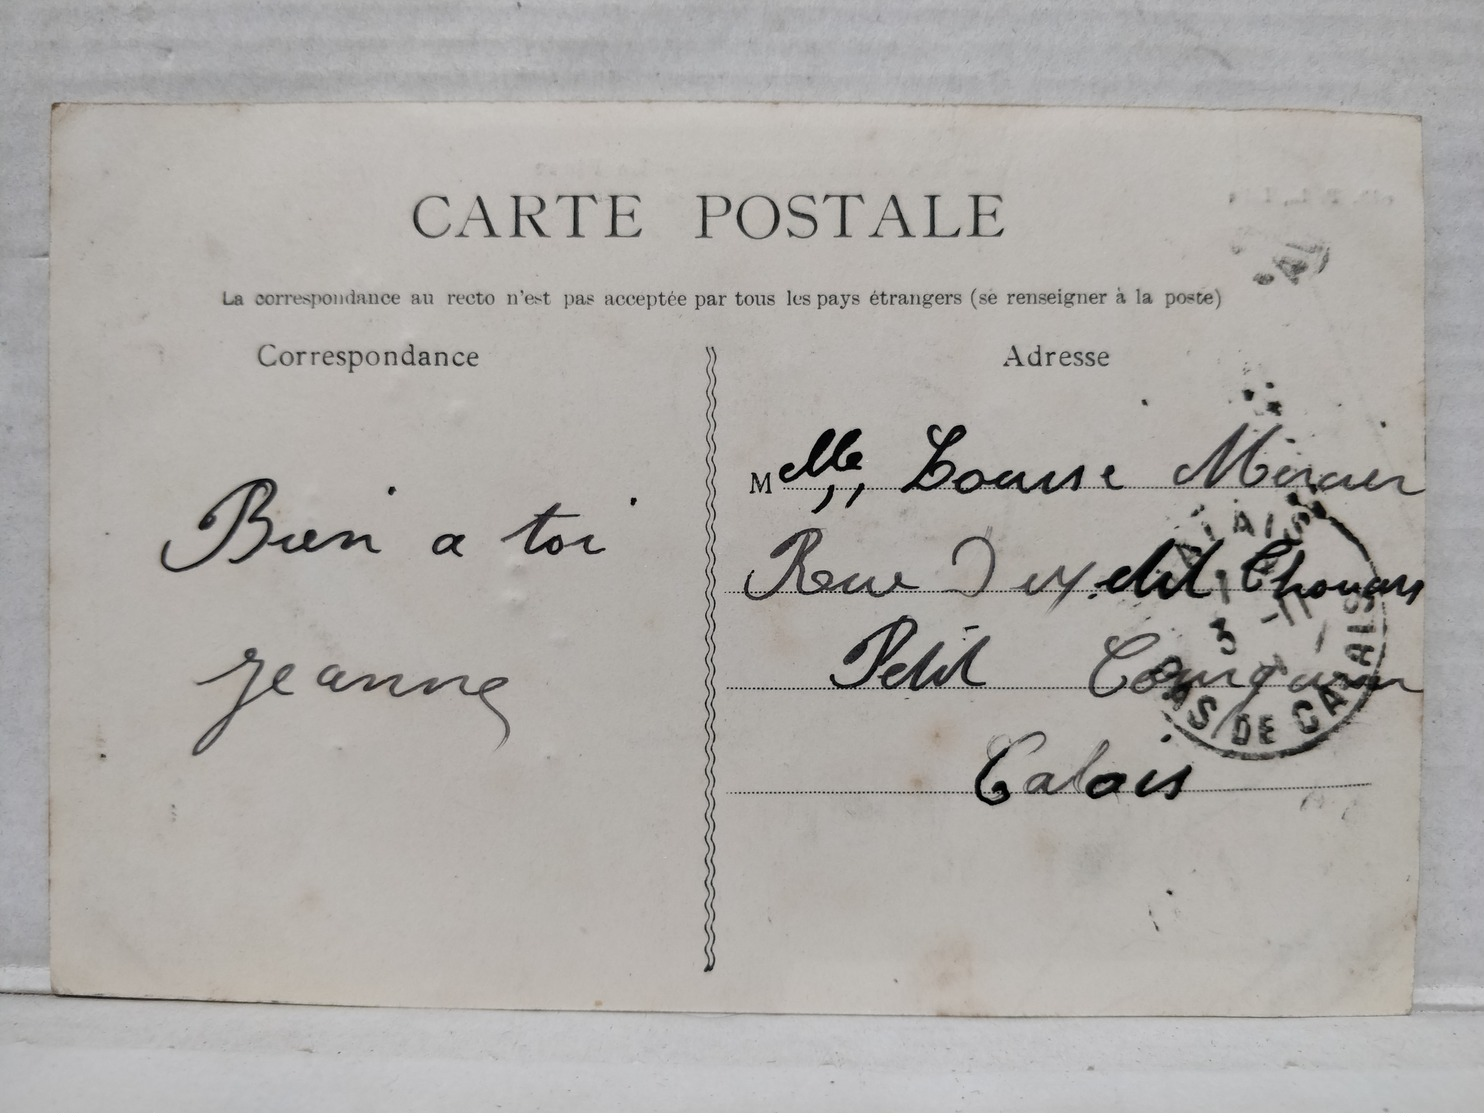 CARTE POSTALE
La correspondance au recto n'est pas acceptée par tous les pays étrangers (se renseigner à la poste)
Correspondance
Adresse
Bien a toi
Jeanne
M elle Louise Mercier
Rue Thouars
Petit Courgain
Calais
CALAIS
3 -11
PAS DE CALAIS